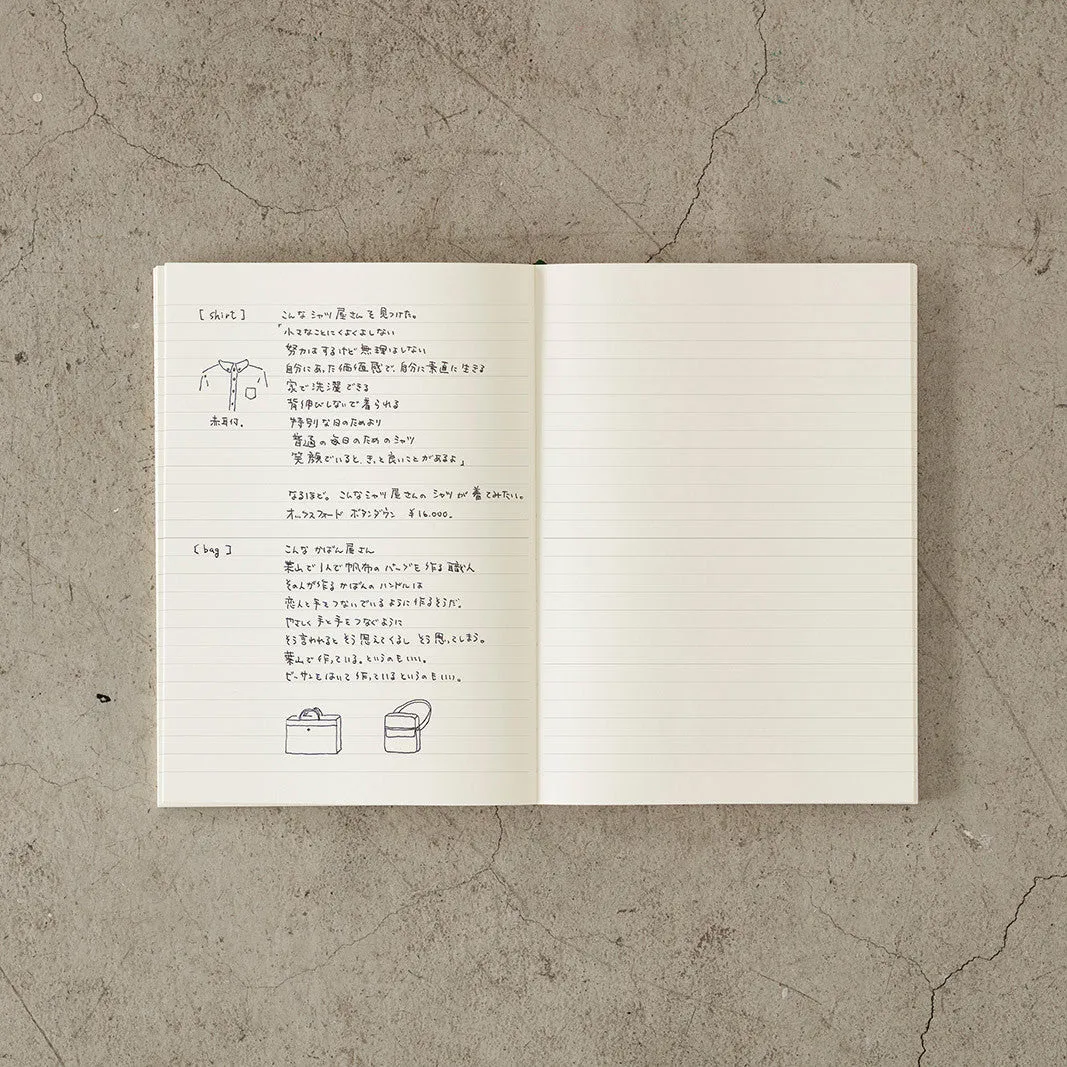 [ shirt ]
こんな シャツ 屋さん を 見つけた。
「小さなことにくよくよしない
努力は するけど 無理はしない
自分にあった価値感で、自分に素直に生きる
家で洗濯できる
背伸びしないで着られる
特別な日のためより
普通の毎日のためのシャツ
笑顔でいると、きっと良いことがあるよ」
赤耳付。
なるほど。こんなシャツ屋さんの シャツが 着てみたい。
オックスフォード ボタンダウン ¥16.000.
[ bag ]
こんな かばん屋さん
葉山で1人で帆布の バッグを 作る 職人
その人が作る かばんの ハンドルは
恋人と手をつないでいるように作るそうだ。
やさしく 手と手を つなぐように
そう言われると そう 思えてくるし そう 思ってしまう。
葉山で 作っている。というのもいい。
ビーサンをはいて 作っているというのもいい。